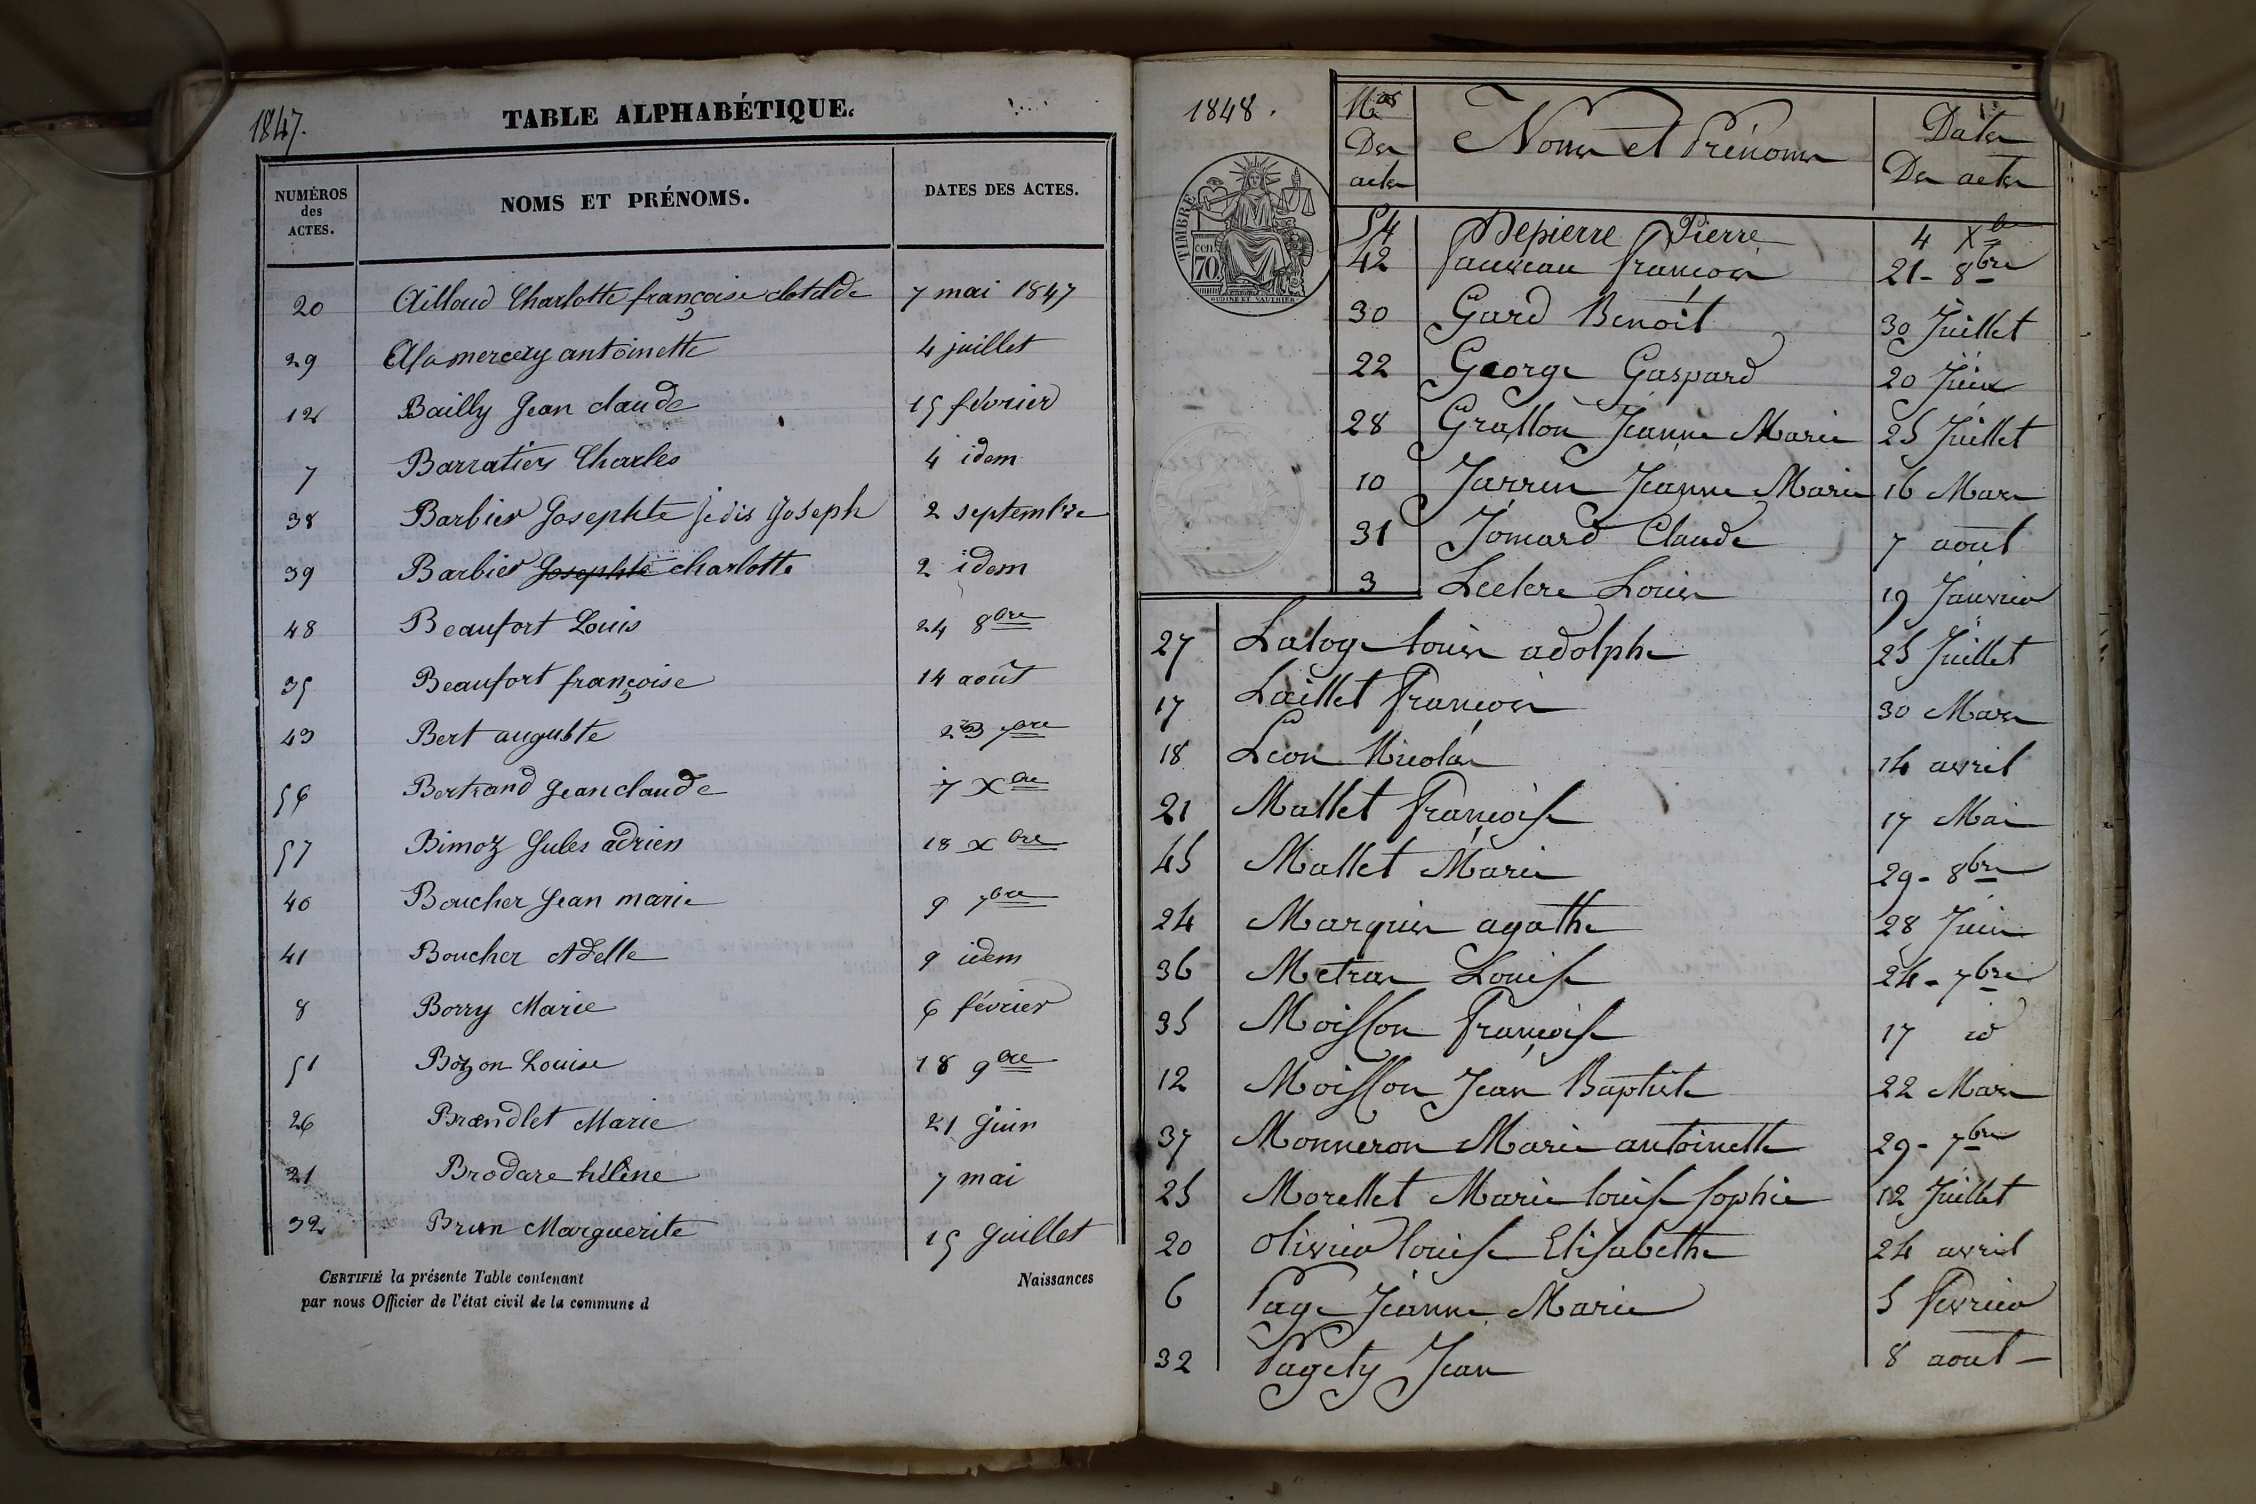 1847.
TABLE ALPHABÉTIQUE.
NUMÉROS des ACTES.
NOMS ET PRÉNOMS.
DATES DES ACTES.
20 Ailloud Charlotte françoise clotilde 7 mai 1847
29 Alamercery antoinette 4 juillet
12 Bailly Jean claude 15 février
7 Barratier Charles 4 idem
38 Barbier Josephte je dis Joseph 2 septembre
39 Barbier Josephte charlotte 2 idem
48 Beaufort Louis 24 8bre
35 Beaufort françoise 14 août
43 Bert auguste 23 7bre
56 Bertrand Jean claude 7 Xbre
57 Bimoz Jules adrien 18 Xbre
40 Boucher Jean marie 9 7bre
41 Boucher Adelle 9 idem
8 Borry Marie 6 février
51 Bozon Louise 18 9bre
26 Brændlet Marie 21 Juin
21 Brodare hélène 7 mai
32 Brun Marguerite 15 Juillet
CERTIFIÉ la présente Table contenant Naissances
par nous Officier de l'état civil de la commune d
1848.
TIMBRE
cen. 70
OUDINE ET VAUTHIER
Nos Des actes
Noms et Prénoms
Dates Des actes
54 Depierre Pierre 4 Xbre
42 Fauveau François 21 - 8bre
30 Gard Benoit 30 Juillet
22 George Gaspard 20 Juin
28 Grallon Jeanne Marie 25 Juillet
10 Jarrin Jeanne Marie 16 Mars
31 Jomard Claude 7 août
3 Leclerc Louis 19 Janvier
27 Laloge louis adolphe 25 Juillet
17 Laillet François 30 Mars
18 Leon Nicolas 14 avril
21 Mallet Françoise 17 Mai
45 Mallet Marie 29 - 8bre
24 Marquis agathe 28 Juin
36 Metras Louise 24 - 7bre
35 Moisson Françoise 17 id
12 Moisson Jean Baptiste 22 Mars
37 Monneron Marie antoinette 29 - 7bre
25 Morellet Marie louise sophie 12 Juillet
20 Olivier louise Elisabethe 24 avril
6 Page Jeanne Marie 5 Fevrier
32 Pagety Jean 8 aout -